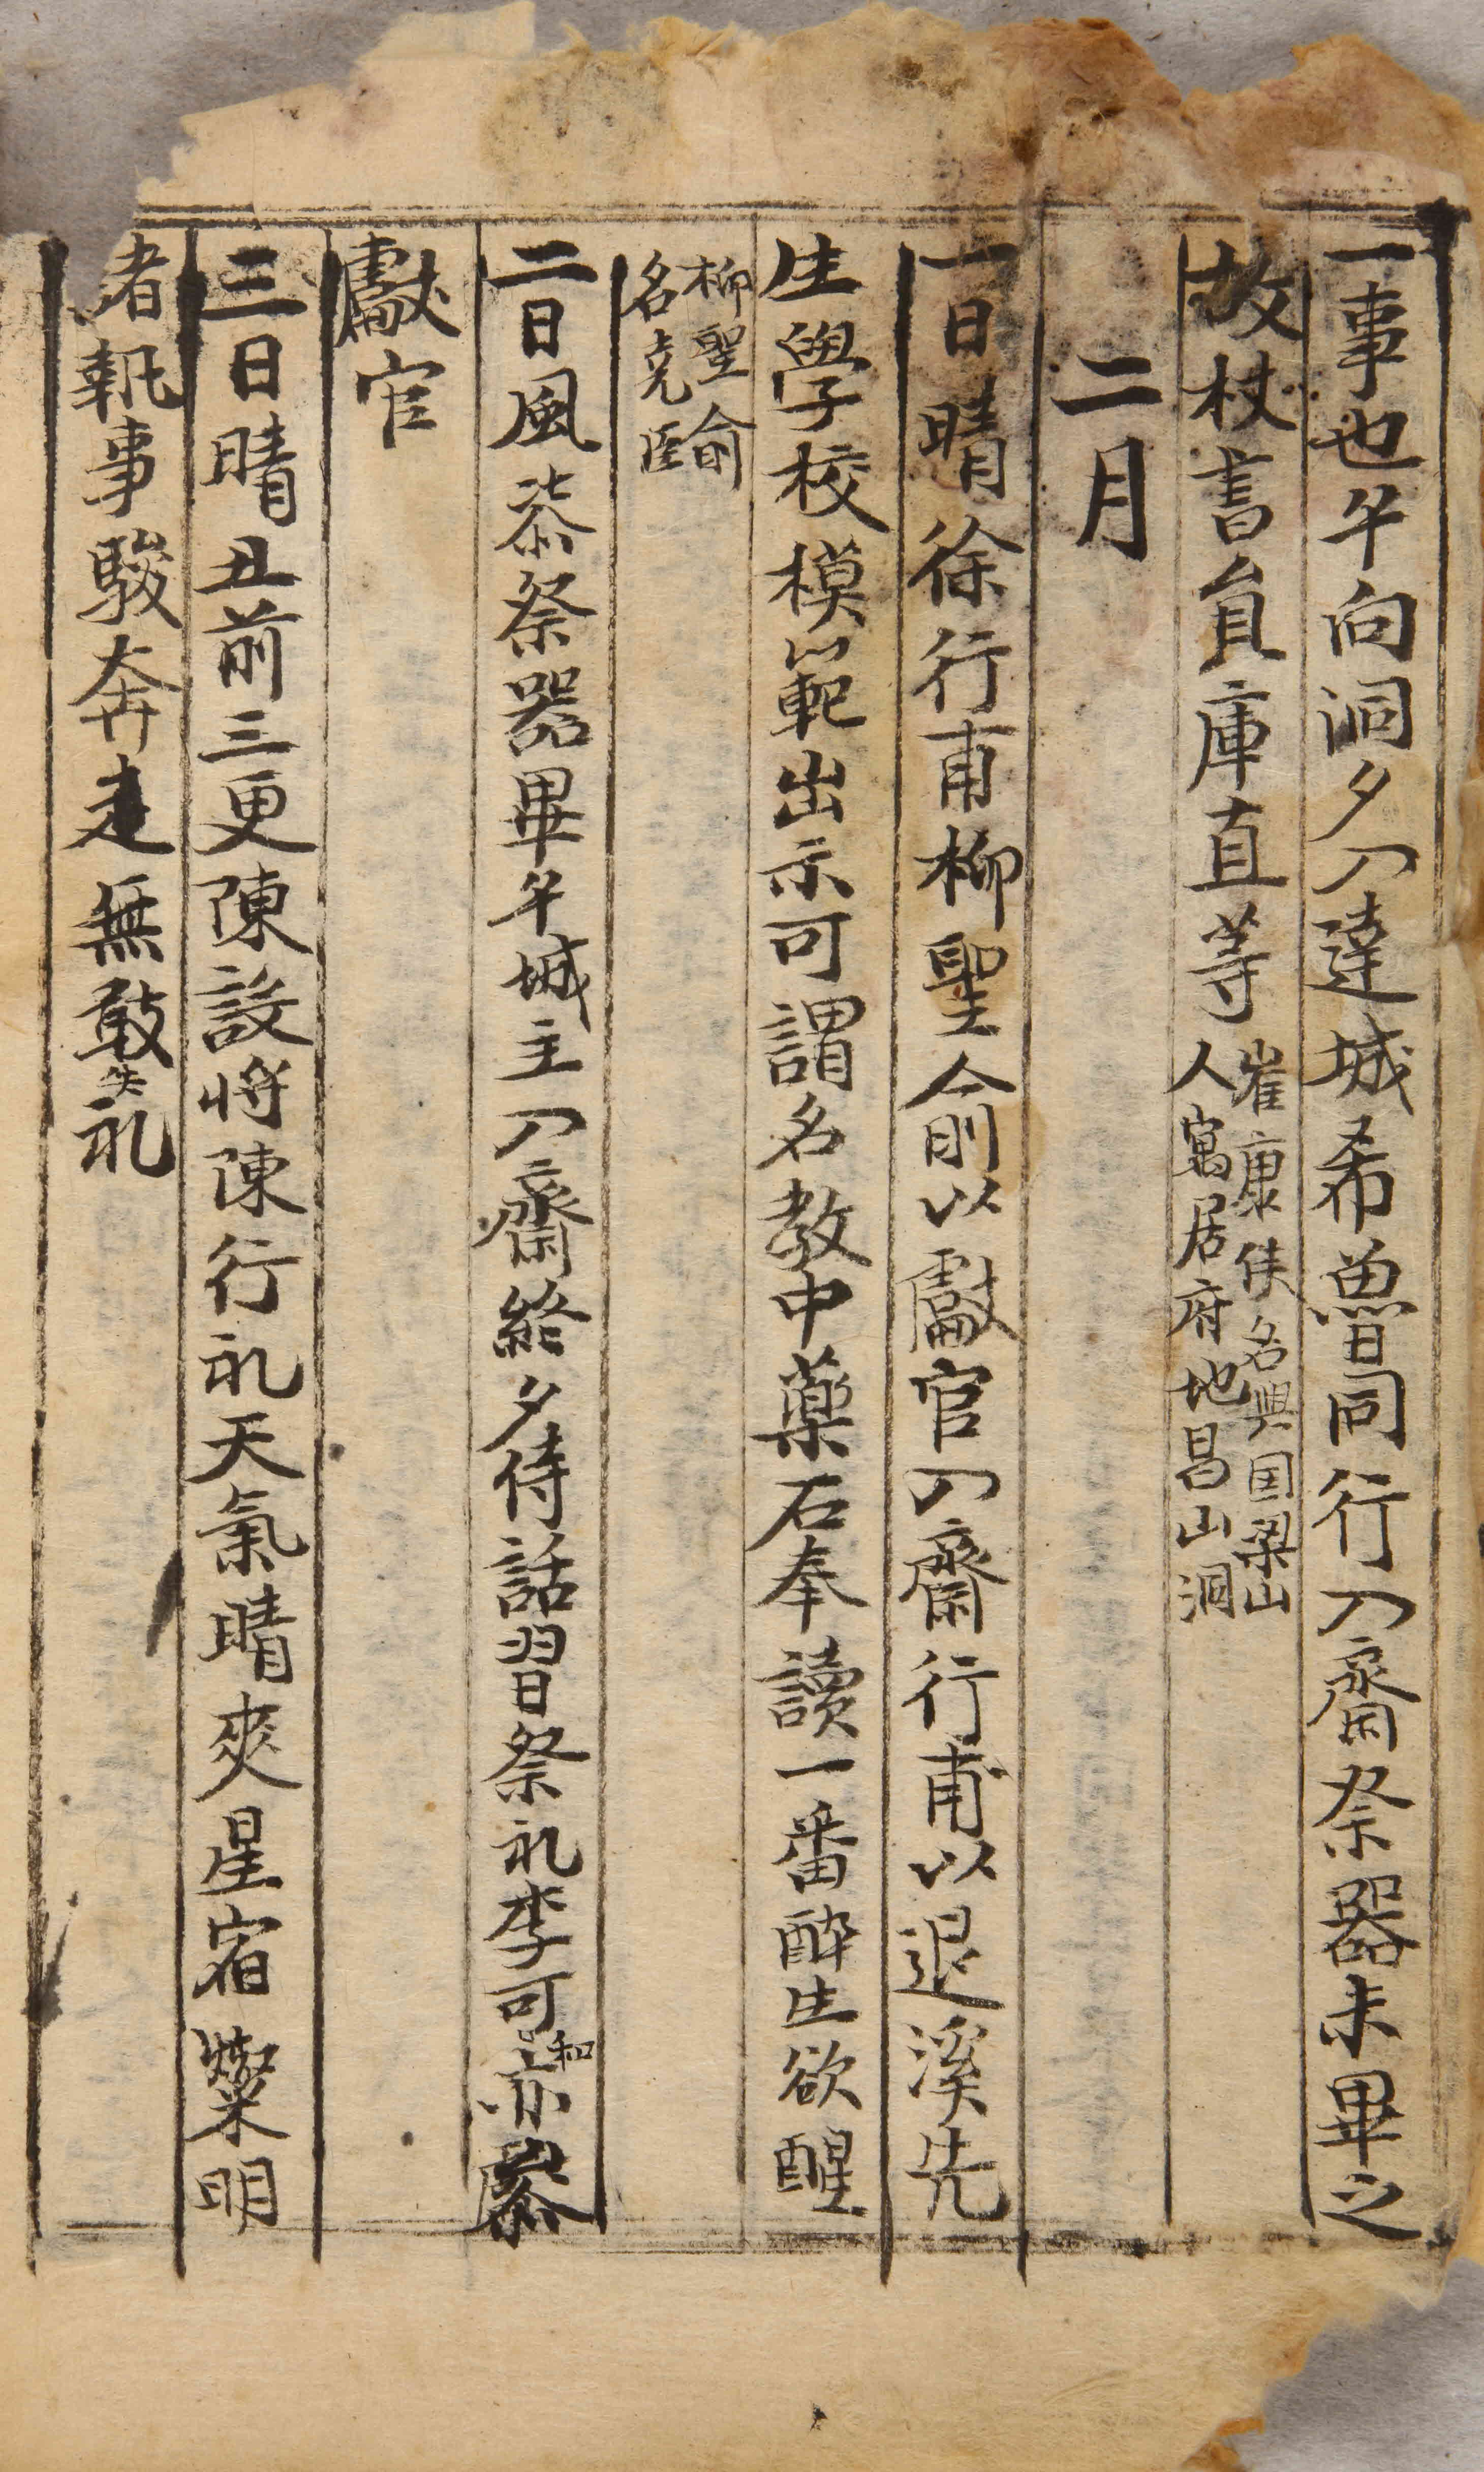 一事也午向洞夕入達城希魯同行入齋祭器未畢之
故杖書負庫直等
崔康侯名興国梁山
人寓居府地昌山洞
二月
一日晴徐行甫柳聖兪以獻官入齋行甫以退溪先
生學校模範出示可謂名教中藥石奉讀一番醉生欲醒
柳聖兪
名堯臣
二日風柒祭器畢午城主入齋終夕侍話習祭礼李可和亦參
獻官
三日晴丑前三更陳設将陳行礼天氣晴爽星宿燦明
者執事駿奔走無敢失礼